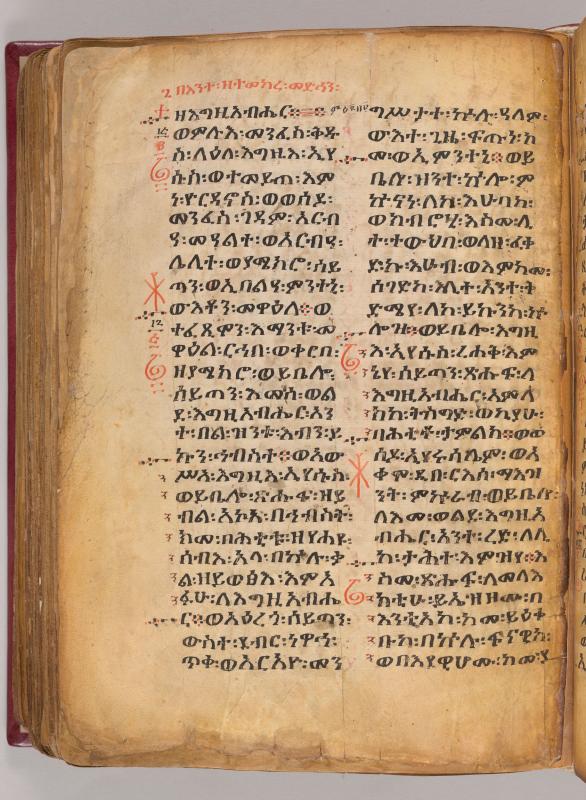 በእንተ፡ዘተመከረ፡መድኃኒ፡
ዘእግዚአብሔር፡
ወምሉእ፡መንፈስ፡ቅዱ
ስ፡ላዕለ፡እግዚእ፡ኢየ
ሱስ፡ወተመይጠ፡እም
ነ፡ዮርዳኖስ፡ወወሰደ፡
መንፈስ፡ገዳም፡አርብ
ዓ፡መዓልተ፡ወአርብዓ፡
ሌሊተ፡ወያሜክሮ፡ሰይ
ጣን፡ወኢበልዓ፡ምንተኒ፡
ውእቶን፡መዋዕለ፨ወ
ተፈጺሞን፡እማንቱ፡መ
ዋዕል፡ርኅበ፡ወቀርበ፡
ዘያሜክሮ፡ወይቤሎ፡
ሰይጣን፡እመሰ፡ወል
ደ፡እግዚአብሔር፡አን
ተ፡በል፡ዝንቱ፡እብን፡ይ
ኩን፡ኅብስተ፨ወአው
ሥአ፡እግዚእ፡ኢየሱስ፡
ወይቤሎ፡ጽሑፍ፡ዘይ
ብል፡አኮኬ፡በኅብስት፡
ከመ፡በሕቲቱ፡ዘየሐዩ፡
ሰብእ፡አላ፡በኵሉ፡ቃ
ል፡ዘይወፅእ፡እምአ
ፉሁ፡ለእግዚአብሔ
ር፨ወአዕረጎ፡ሰይጣን፡
ውስተ፡ደብር፡ነዋኅ፡
ጥቀ፡ወአርአዮ፡መን
ግሥታተ፡ኵሉ፡ዓለም፡
ውእተ፡ጊዜ፡ፍጡነ፡ከ
መ፡ወኢምንተኒ፨ወይ
ቤሎ፡ዝንተ፡ኵሎ፡ም
ኵናነ፡ለከ፡እሁበከ፡
ወክብሮሂ፡እስመ፡ሊ
ተ፡ተውህበ፡ወለዘ፡ፈቀ
ድኩ፡እሁብ፡ወእምከመ፡
ሰገድከ፡ሊተ፡አንተ፡ቅ
ድሜየ፡ለከ፡ይኩንከ፡ኵ
ሎዝ፨ወይቤሎ፡እግዚ
እ፡ኢየሱስ፡ረሐቅ፡እም
ኔየ፡ሰይጣን፡ጽሑፍ፡ለ
እግዚአብሔር፡አምላ
ክከ፡ትሰግድ፡ወኪያሁ፡
በሕቲቶ፡ታምልክ፨ወወ
ሰዶ፡ኢየሩሳሌም፡ወአ
ቀሞ፡ዲበ፡ርእሰ፡ማእዝ
ንተ፡ምኵራብ፡ወይቤሎ፡
ለእመ፡ወልደ፡እግዚአ
ብሔር፡አንተ፡ረድ፡ለሊ
ከ፡ታሕተ፡እምዝየ፨እ
ስመ፡ጽሑፍ፡ለመላእ
ክቲሁ፡ይኤዝዞሙ፡በ
እንቲአከ፡ከመ፡ይዕቀ
ቡከ፡በኵሉ፡ፍናዊከ፡
ወበእደዊሆሙ፡ከመ፡ያ